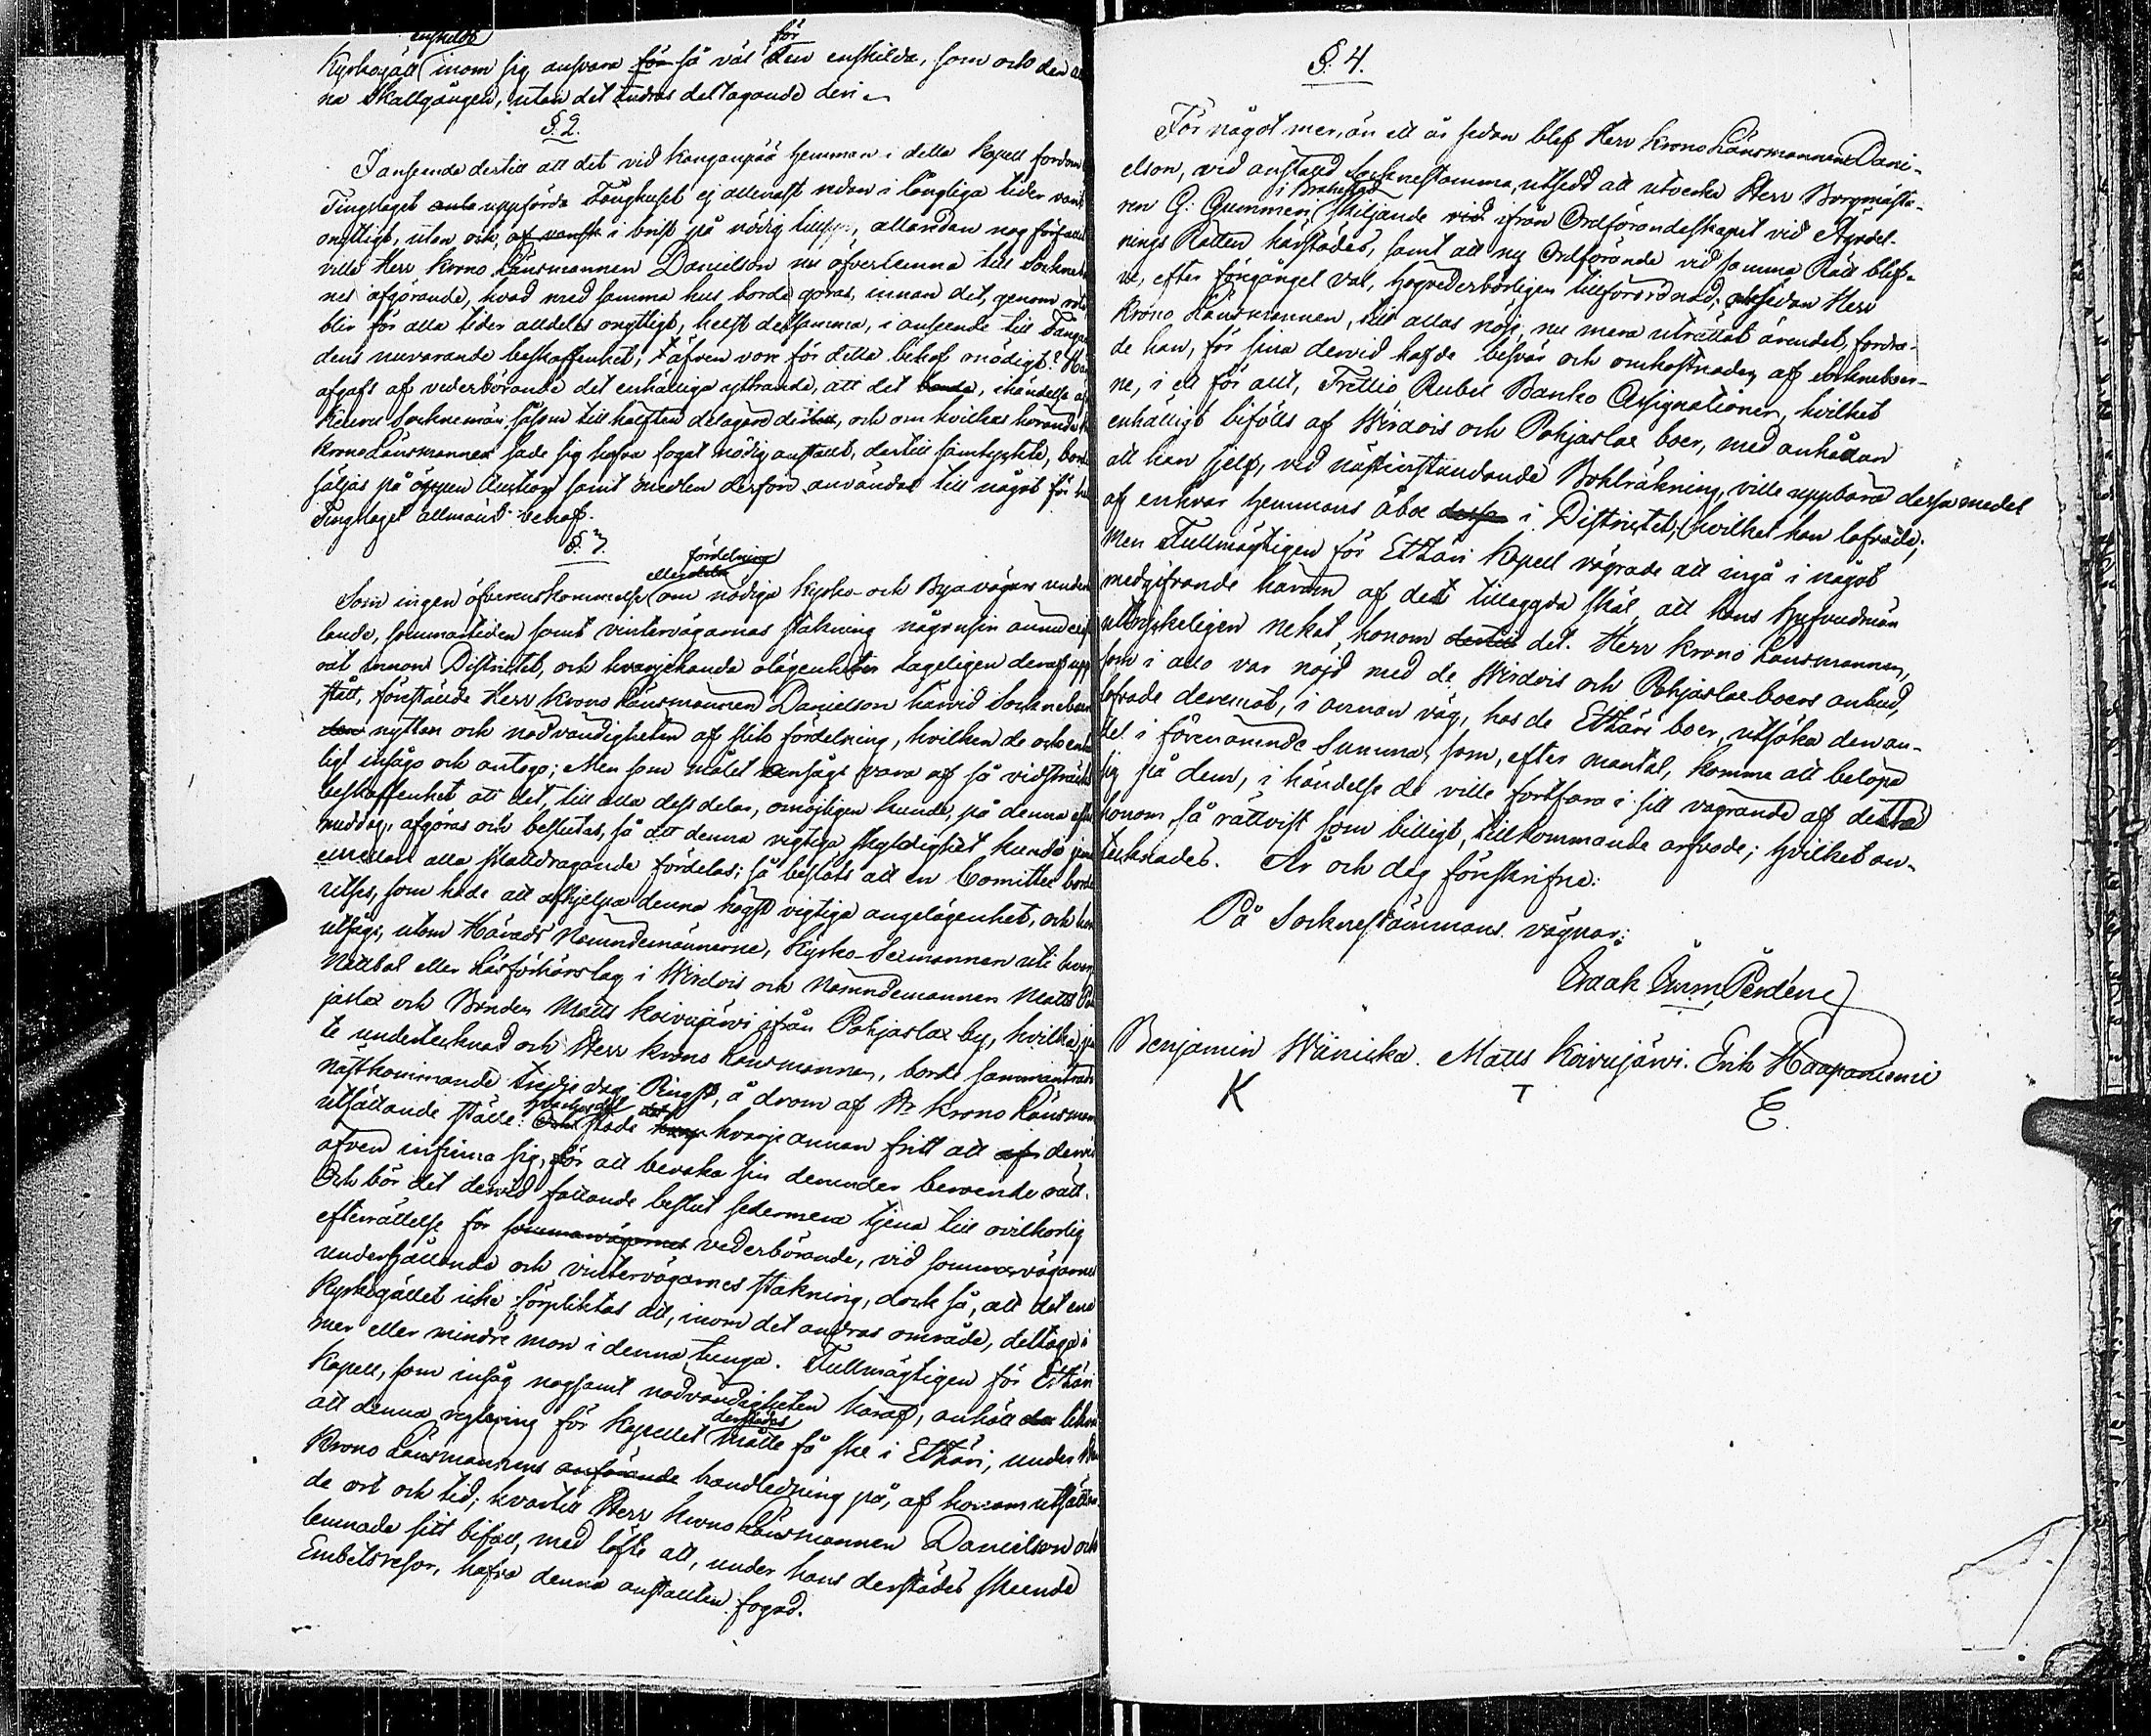 enskildt
Kyrkogäll inom sig ansvara för så väl för den enskilda, som och den
na Skallgången, utan det andras deltagande deri.
§. 2.
I anseende dertill att det vid Kangaspää hemman i detta Kapell fordom
Tingslaget uppförda Fånghuset ej allenast redan i långliga tider varit
onyttigt, utan och, i brist på nödig tillsyn, allaredan nog förfallet
ville Herr Krono Länsmannen Danielson nu öfverlemna till Sockne
nes afgörande, hvad med samma hus borde göras, innan det, genom röta
blir för alla tider alldeles onyttigt, helst detsamma, i anseende till Fångar
dens nuvarande beskaffenhet, äfven vore för detta behof onödigt?
afgafs af vederbörande det enhälliga yttrande, att det borde, i händelse af
Keuru Socknemän, såsom till hälften delägare dertill, och om hvilkas hörande
Krono Länsmannen sade sig hafva fogat nödig anstalt, dertill samtyckte, borde
säljas på öppen Auction samt medlen derför användas till något för
Tingslaget allmänt behof.
§. 3.
eller dela fördelning
Som ingen öfverenskommelse om nödiga Kyrko- och Byavägars under
lande, sommartiden samt vintervägarnas stakning någonsin ännu
rat innom Districtet, och hvarjehanda olägenheter dageligen deraf upp
stått, föreställde Herr Krono Länsmannen Danielson härvid Sockneboer
nyttan och nödvändigheten af slik fördelning, hvilken de och enhäl
ligt insågo och antogo; Men som målet ansågs vara af så vidsträckt
beskaffenhet att det, till alla dess delar, omöjligen kunde, på denna efter
middag, afgöras och beslutas, så att denna vigtiga skyldighet kunde
emellan alla skattdragande fördelas; så beslöts att en Comittee borde
utses, som hade att afhjelpa denna högst vigtiga angelägenhet, och
utsågs, utom Härads Nämndemännerne, Kyrko-Sexmannen uti hvar
Nattbol eller Läsförhörslag i Wirdois och Nämndemannen Matts
jaslax och Bonden Matts Koivujärvi ifrån Pohjaslax by, hvilka
te undertecknad och Herr Krono Länsmannen, borde sammanträda
nästkommande tredje dag Pingst, å drom af Hr Krono Länsman
utsättande ställe. stode hvarje annan fritt att dervid
äfven infinna sig, för att bevaka sin derunder beroende rätt.
Och bör det dervid fattande beslut sedermera tjena till ovilkorlig
efterrättelse för sommarvägarnes vederbörande, vid sommarvägarnes
underhållande och vintervägarnes stakning, dock så, att det ena
Kyrkogället icke förpliktas att, inom det andras område, deltaga i
mer eller mindre mon i denna tunga. Fullmägtigen för Etthäri
Kapell, som insåg nogsamt nödvändigheten häraf, anhöll
derstädes
att denna reglering för Kapellet måtte få ske i Etthäri, under
Krono Länsmannens anförande handledning på, af honom utsättan
de ort och tid; hvartill Herr Krono Länsmannen Danielson och
lemnade sitt bifall, med löfte att, under hans derstädes skeende
Embetsresor, hafva denna anstalten fogad.
§. 4.
För något mer, än ett år sedan blef Herr Krono Länsmannen Dani-
elson, vid anställd Socknestämma, utsedd att utverka Herr Borgmästa-
i Brahestad
ren G: Gummeri, skiljande vid ifrån Ordförandeskapet vid Ägodel-
nings Rätten härstädes, samt att ny Ordförande vid samma Rätt blef-
ve, efter föregånget val, högvederbörligen tillförordnad; sedan Herr
Krono Länsmannen, till allas nöje, nu mera uträttat ärendet, fordra-
de han, för sina dervid hafde besvär och omkostnader, af sockneboer-
ne, i ett för allt, Trettio Rubel Banko Assignationer, hvilket
enhälligt bifölls af Wirdois och Pohjaslax boer, med anhållan
att han sjelf, vid nästinstundande Bohlräkning, ville uppbära dessa medel
af enhvar hemmans åboe dessa i Districtet; hvilket han lofvade;
Men Fullmägtigen för Etthäri Kapell vägrade att ingå i något
medgifvande härom af det tillagda skäl, att hans Hufvudmän
uttryckeligen nekat honom dertill det. Herr Krono Länsmannen,
som i allo var nöjd med de Wirdois och Pohjaslaxboers anbud,
lofvade deremot, i annan väg, hos de Etthäri boer, utsöka den an-
del i förenämnde Summa, som, efter mantal, komma att belöpa
sig på dem, i händelse de ville fortfara i sitt vägrande af detta
honom så rättvist som billigt, tillkommande arfvode; hvilket an-
tecknades. År och dag föreskrifne:
På Socknestämmans vägnar:
Benjamin Wänickä. Matts Koivujärvi. Erik Haapaniemi
K T E.